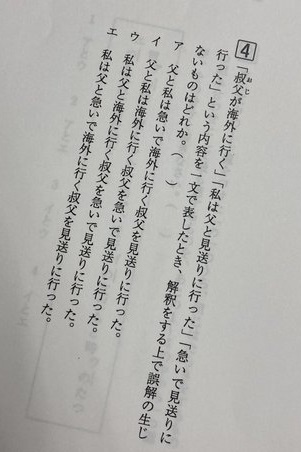 4 「叔父が海外に行く」「私は父と見送りに行った」「急いで見送りに
おじ
行った」という内容を一文で表したとき、解釈をする上で誤解の生じ
ないものはどれか。(　　)
ア　父と私は急いで海外に行く叔父を見送りに行った。
イ　父と私は海外に行く叔父を急いで見送りに行った。
ウ　私は父と海外に行く叔父を急いで見送りに行った。
エ　私は父と急いで海外に行く叔父を見送りに行った。